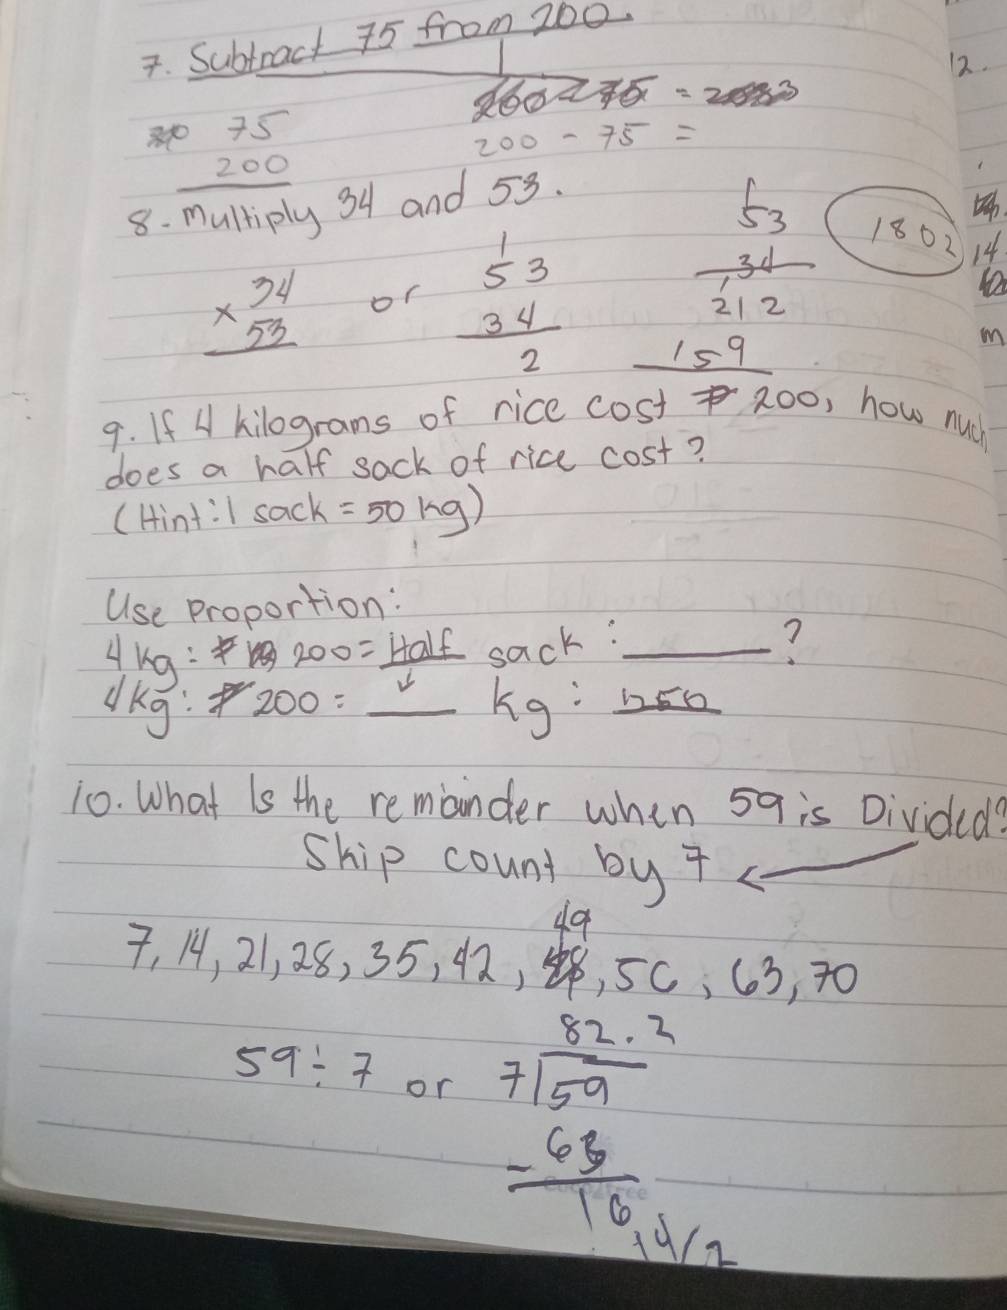 7. Subtract 75 from 200.
12.
75
200
200 - 75 =
8. Multiply 34 and 53.
34
× 53
or
1
53
34
2
1
53
34
212
159
1802
14
m
9. If 4 kilograms of rice cost ₱ 200, how much
does a half sack of rice cost?
(Hint: 1 sack = 50 kg)
Use Proportion:
4 kg : ₱ 200 = Half sack : ____?
4 kg : ₱ 200 = ___ kg : 250
10. What Is the remainder when 59 is Divided?
Skip count by 7
49
7, 14, 21, 28, 35, 42, 48, 56, 63, 70
82.2
59 ÷ 7 or 7 59
- 63
16
14/2